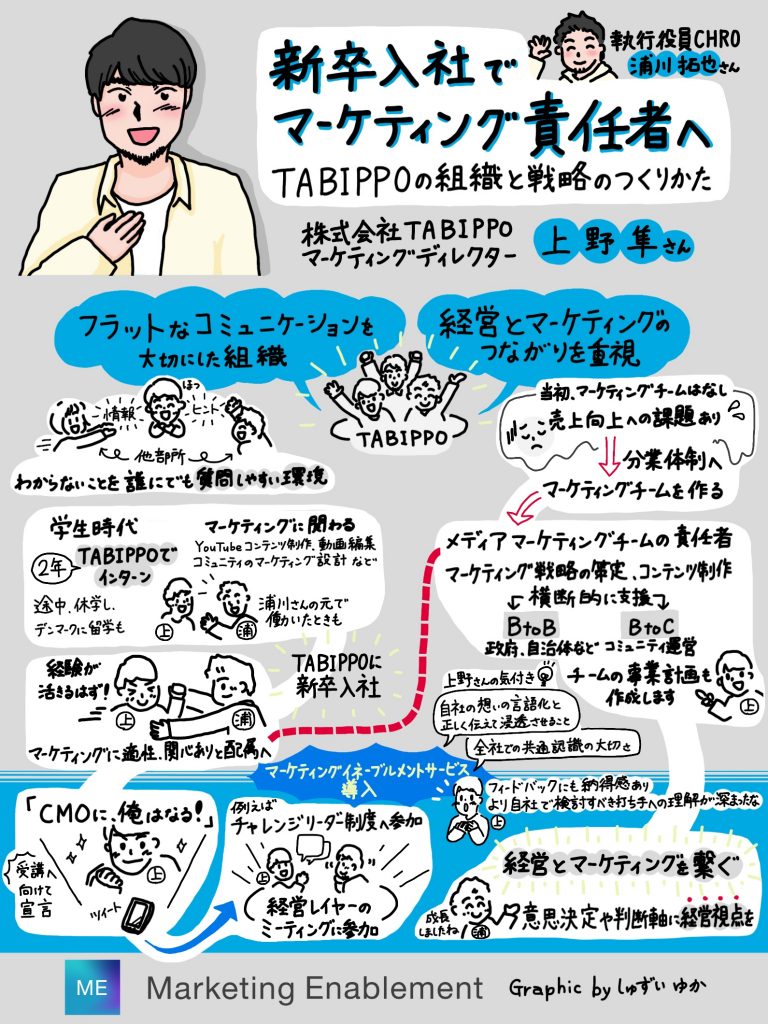 執行役員CHRO
浦川拓也さん
新卒入社で
マーケティング責任者へ
TABIPPOの組織と戦略のつくりかた
株式会社TABIPPO
マーケティングディレクター
上野隼さん
フラットなコミュニケーションを
大切にした組織
経営とマーケティングの
つながりを重視
TABIPPO
情報
ほっ
ヒント
他部所
わからないことを誰にでも質問しやすい環境
当初、マーケティングチームはなし
売上向上への課題あり
分業体制へ
マーケティングチームを作る
学生時代
2年
TABIPPOで
インターン
途中、休学し、
デンマークに留学も
マーケティングに関わる
YouTubeコンテンツ制作、動画編集
コミュニティのマーケティング設計 など
上
浦
浦川さんの元で
働いたときも
メディアマーケティングチームの責任者
マーケティング戦略の策定、コンテンツ制作
横断的に支援
BtoB
BtoC
政府、自治体など
コミュニティ運営
チームの事業計画も
作成します
上
経験が
活きるはず!
上
浦
マーケティングに適性、関心ありと配属へ
TABIPPOに
新卒入社
上野さんの気付き
自社の想いの言語化と
正しく伝えて浸透させること
全社での共通認識の大切さ
マーケティングイネーブルメントサービス
導入
フィードバックにも納得感あり
より自社で検討すべき打ち手への理解が深まったな
上
「CMOに、俺はなる!」
上
受講へ
向けて
宣言
ツイート
例えば
チャレンジリーダー制度へ参加
上
経営レイヤーの
ミーティングに参加
経営とマーケティングを繋ぐ
意思決定や判断軸に経営視点を
成長
しましたね
浦
ME
Marketing Enablement
Graphic by しゅずい ゆか